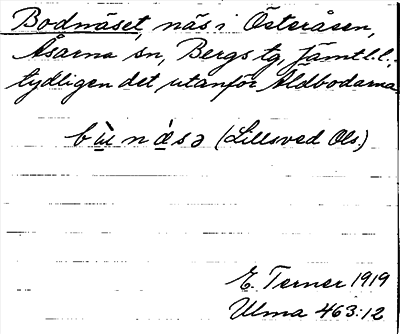 Bodnäset, näs i Österåsen,
Åsarna sn, Bergs tg, Jämtl.l.,
tydligen det utanför Åldbodarna
bù̱ n á̱ s ə (Lillsved Ols.)
E. Terner 1919
Ulma 463:12